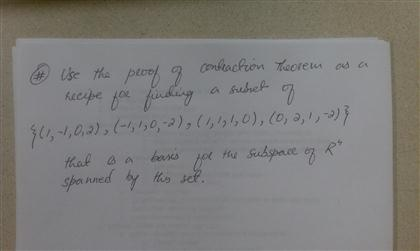 # Use the proof of contraction theorem as a
recipe for finding a subset of
{(1,-1,0,2), (-1,1,0,-2), (1,1,1,0), (0,2,1,-2)}
that is a basis for the subspace of R⁴
spanned by this set.